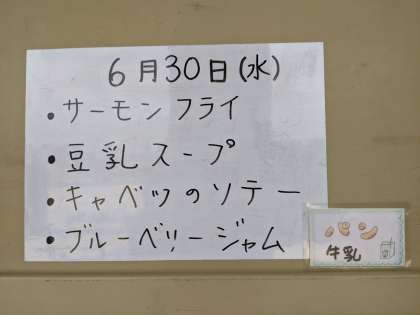 6月30日(水)
・サーモンフライ
・豆乳スープ
・キャベツのソテー
・ブルーベリージャム
パン
牛乳